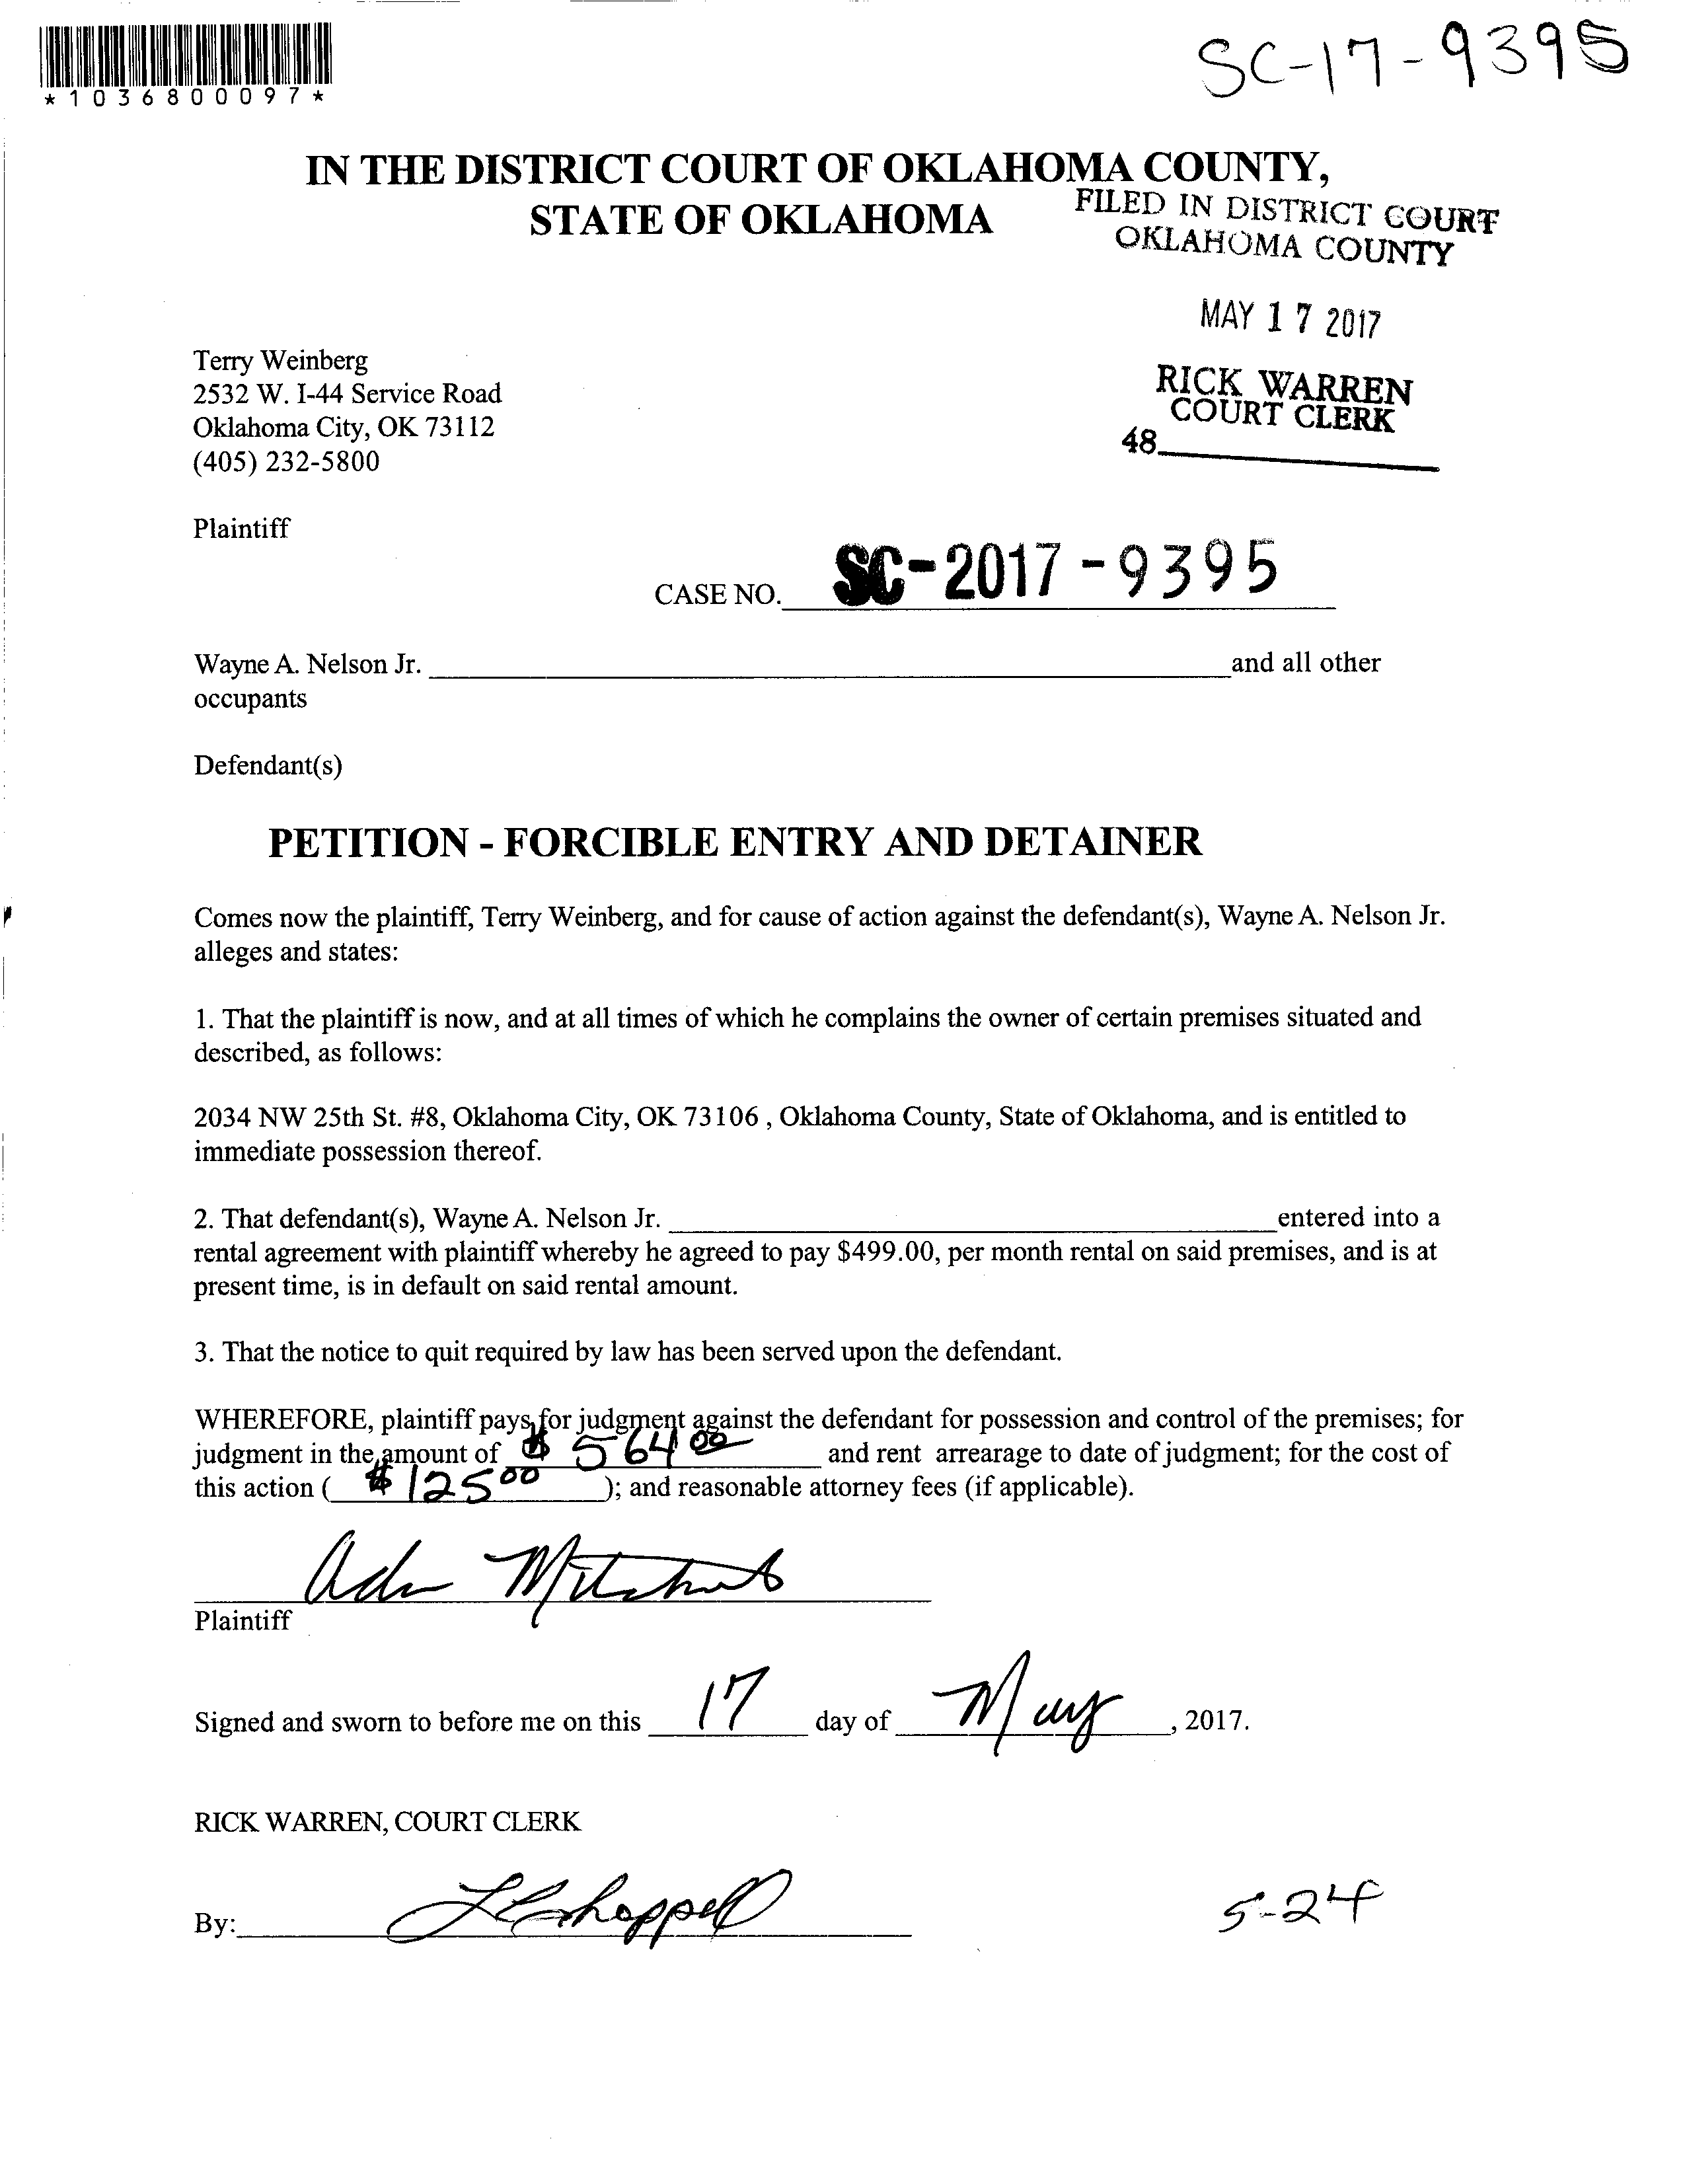 SC-17-9395
*1036800097*
IN THE DISTRICT COURT OF OKLAHOMA COUNTY,
STATE OF OKLAHOMA
FILED IN DISTRICT COURT
OKLAHOMA COUNTY
MAY 17 2017
RICK WARREN
COURT CLERK
48
Terry Weinberg
2532 W. I-44 Service Road
Oklahoma City, OK 73112
(405) 232-5800
Plaintiff
CASE NO. SC-2017-9395
Wayne A. Nelson Jr. and all other
occupants
Defendant(s)
PETITION - FORCIBLE ENTRY AND DETAINER
Comes now the plaintiff, Terry Weinberg, and for cause of action against the defendant(s), Wayne A. Nelson Jr.
alleges and states:
1. That the plaintiff is now, and at all times of which he complains the owner of certain premises situated and
described, as follows:
2034 NW 25th St. #8, Oklahoma City, OK 73106 , Oklahoma County, State of Oklahoma, and is entitled to
immediate possession thereof.
2. That defendant(s), Wayne A. Nelson Jr. entered into a
rental agreement with plaintiff whereby he agreed to pay $499.00, per month rental on said premises, and is at
present time, is in default on said rental amount.
3. That the notice to quit required by law has been served upon the defendant.
WHEREFORE, plaintiff pays for judgment against the defendant for possession and control of the premises; for
judgment in the amount of $ 564 00 and rent arrearage to date of judgment; for the cost of
this action ( $ 125 00 ); and reasonable attorney fees (if applicable).
Plaintiff
Signed and sworn to before me on this 17 day of May , 2017.
RICK WARREN, COURT CLERK
By:
5-24